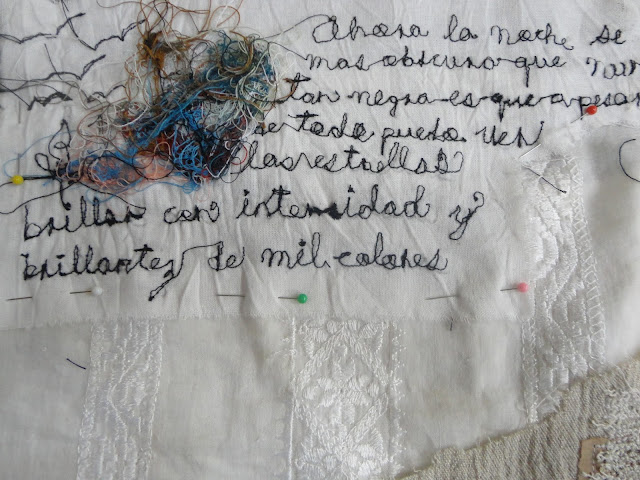 Ahora la noche se
mas obscura que nun
tan negra es que a pesar
de todo puedo ver
las estrellas
brillar con intensidad y
brillantez de mil colores